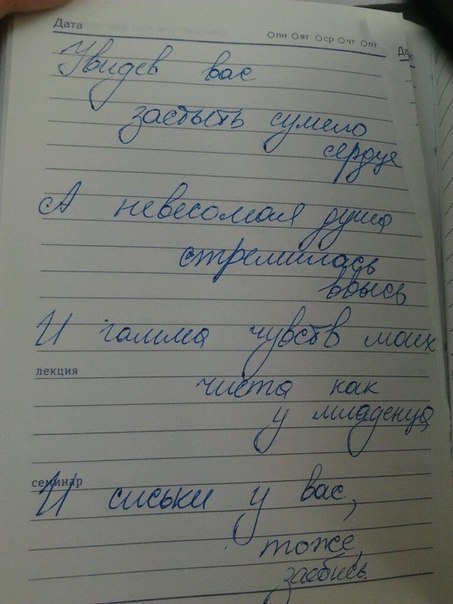 Дата
Опн Овт Оср Очт Опт
Да
Увидев вас
застыть сумело
сердце
А невесомая душа
стремилась
ввысь
И гамма чувств моих
лекция
чиста как
у младенца,
семинар
И сиськи у вас,
тоже,
заебись.